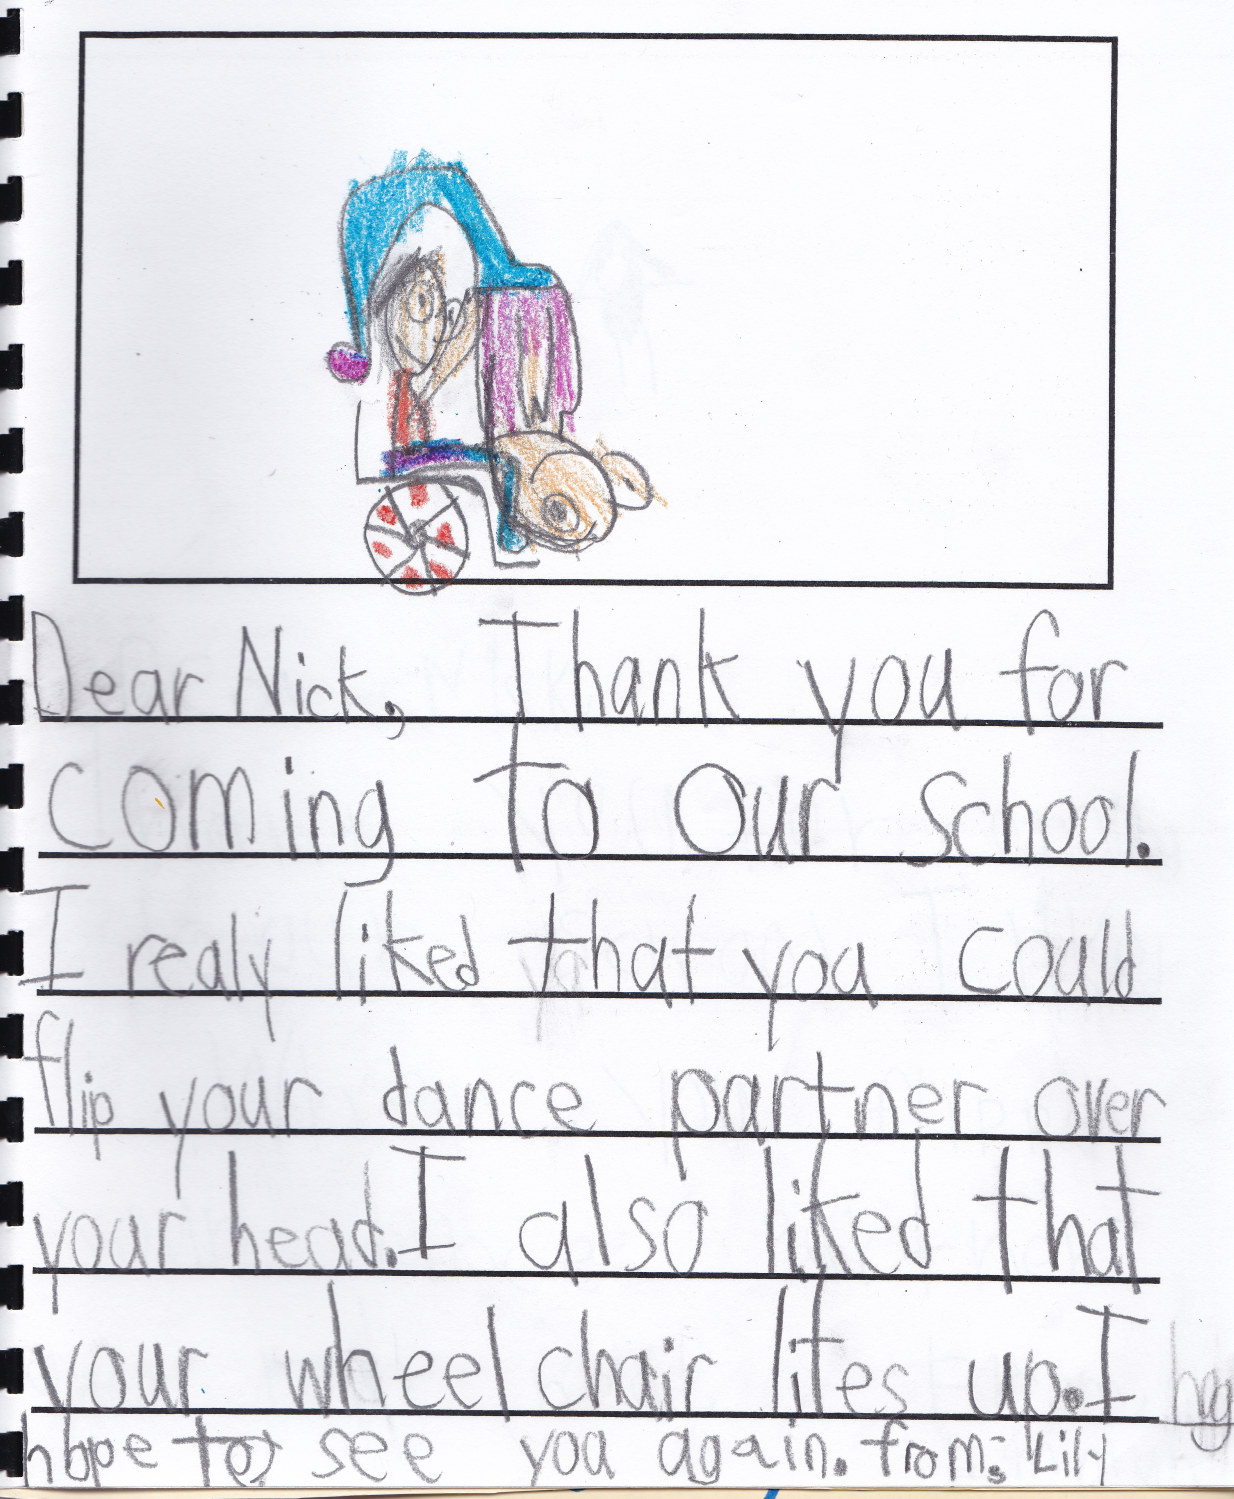 Dear Nick, Thank you for
coming to our school.
I realy liked that you could
flip your dance partner over
your head. I also liked that
your wheel chair lites up. I
hope to see you again. from: Lily